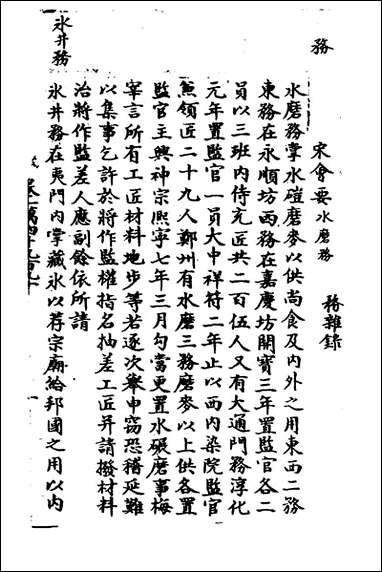 務
宋會要水磨務
務雜錄
水磨務掌水磑磨麥以供尚食及内外之用東西二務
東務在永順坊西務在嘉慶坊開寶三年置監官各二
員以三班内侍充匠共二百伍人又有大通門務淳化
元年置監官一員大中祥符二年止以西内染院監官
兼領匠二十九人鄭州有水磨三務磨麥以上供各置
監官主興神宗熙寧七年三月勾當更置水碾磨事梅
宰言所有工匠材料地步等若逐次舉申竊恐稽延難
以集事乞許於將作監權指名抽差工匠并請撥材料
治將作監差人應副餘依所請
冰井務
冰井務在夷門内掌藏冰以荐宗廟給邦國之用以内